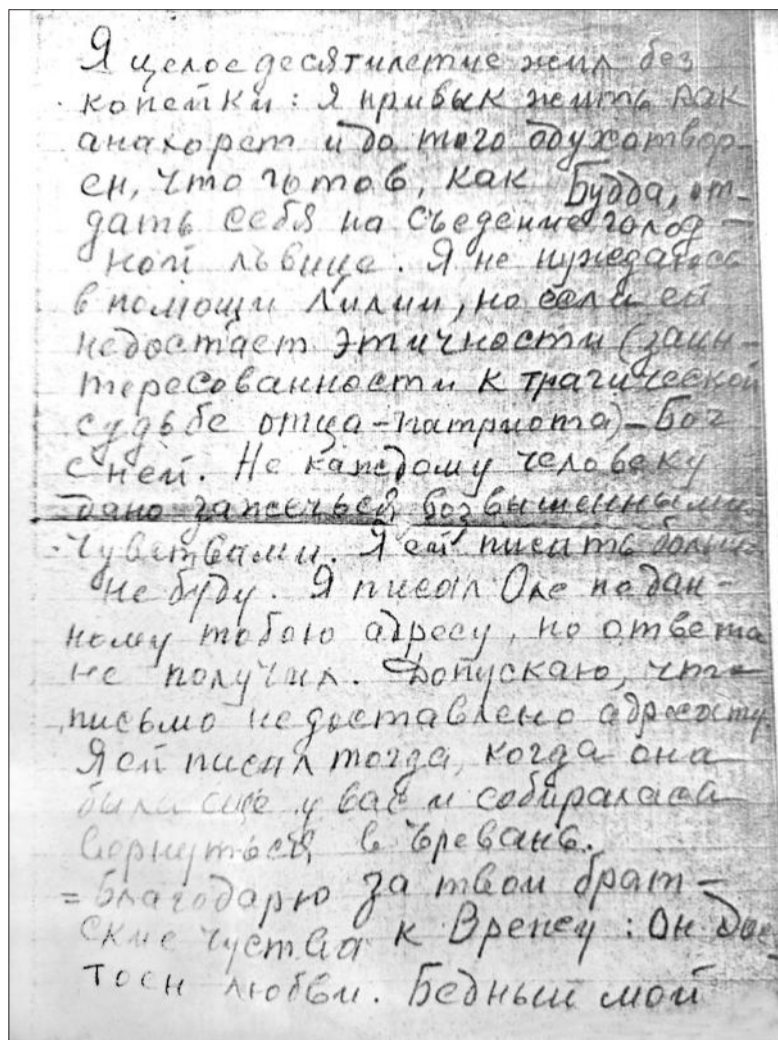 Я целое десятилетие жил без
копейки: я привык жить как
анахорет и до того одухотвор-
ен, что готов, как Будда, от-
дать себя на съедение голод-
ной львице. Я не нуждаюсь
в помощи Лилии, но если ей
недостает этичности (заин-
тересованности к трагической
судьбе отца-патриота) – Бог
с ней. Не каждому человеку
дано зажечься возвышенными
чувствами. Я ей писать больше
не буду. Я писал Оле по дан-
ному тобою адресу, но ответа
не получил. Допускаю, что
письмо недоставлено адресату.
Я ей писал тогда, когда она
была еще у вас и собиралась
вернуться в Ереван.
= Благодарю за твои брат-
ские чуства к Врежу: Он дос-
тоен любви. Бедный мой